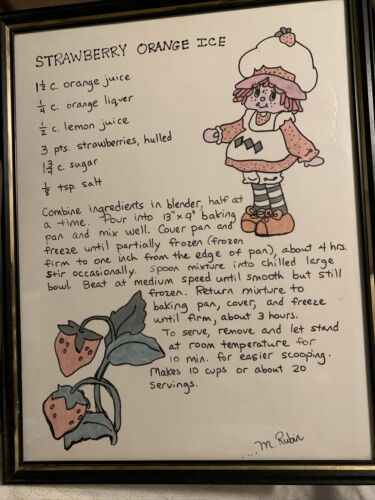 STRAWBERRY ORANGE ICE
1 1/2 c. orange juice
1/4 c. orange liquer
1/2 c. lemon juice
3 pts. strawberries, hulled
1 3/4 c. sugar
1/8 tsp. salt
Combine ingredients in blender, half at
a time. Pour into 13" x 9" baking
pan and mix well. Cover pan and
freeze until partially frozen (frozen
firm to one inch from the edge of pan), about 4 hrs.
Stir occasionally. Spoon mixture into chilled large
bowl. Beat at medium speed until smooth but still
frozen. Return mixture to
baking pan, cover, and freeze
until firm, about 3 hours.
To serve, remove and let stand
at room temperature for
10 min. for easier scooping.
Makes 10 cups or about 20
servings.
....M. Rubin